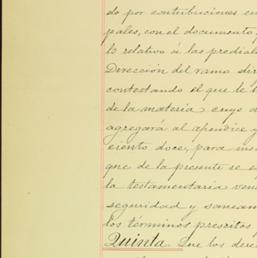 do por contribuciones en
pales, con el documento
lo relativo á las predial
Dirección del ramo dir
contestando el que le
de la materia cuyo
agregará al apéndice y
ciento doce, para
que de la presente se e
la testamentaria ven
seguridad y sanea
los términos prescritos
Quinta. Que los dere